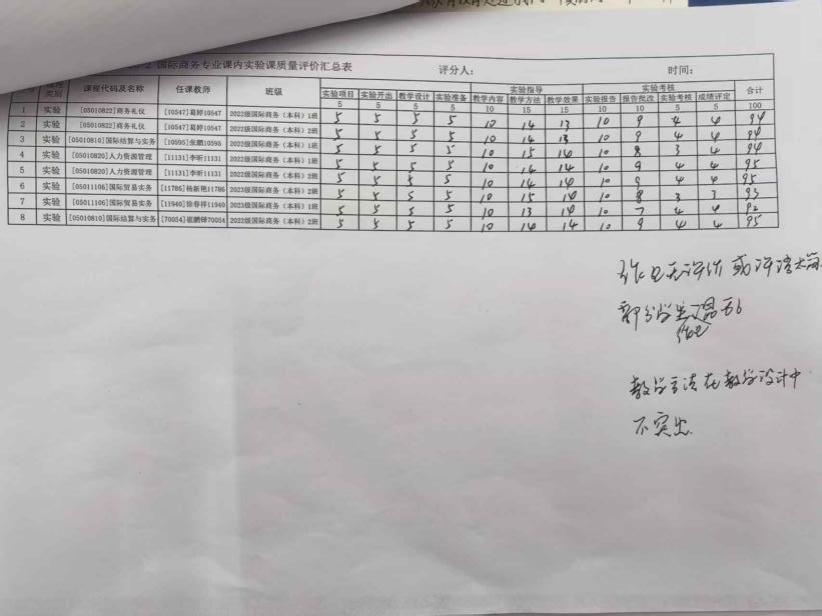 国际商务专业课内实验课质量评价汇总表 评分人： 时间：
类别 课程代码及名称 任课教师 班级 实验指导 实验考核 合计
实验项目 实验开出 教学设计 实验准备 教学内容 教学方法 教学效果 实验报告 报告批改 实验考核 成绩评定
5 5 5 5 10 15 15 10 10 5 5 100
1 实验 [05010822]商务礼仪 [10547]葛婷10547 2022级国际商务（本科）1班 5 5 5 5 10 14 13 10 9 4 4 94
2 实验 [05010822]商务礼仪 [10547]葛婷10547 2022级国际商务（本科）2班 5 5 5 5 10 14 13 10 9 4 4 94
3 实验 [05010810]国际结算与实务 [10595]张鹏10595 2022级国际商务（本科）1班 5 5 5 5 10 15 14 10 8 3 4 94
4 实验 [05010820]人力资源管理 [11131]李昕11131 2022级国际商务（本科）1班 5 5 5 5 10 14 14 10 9 4 4 95
5 实验 [05010820]人力资源管理 [11131]李昕11131 2022级国际商务（本科）2班 5 5 5 5 10 14 14 10 9 4 4 95
6 实验 [05011106]国际贸易实务 [11786]杨新艳11786 2023级国际商务（本科）2班 5 5 5 5 10 15 14 10 8 3 3 93
7 实验 [05011106]国际贸易实务 [11940]徐春祥11940 2023级国际商务（本科）1班 5 5 5 5 10 13 14 10 7 4 4 92
8 实验 [05010810]国际结算与实务 [70054]崔鹏铎70054 2022级国际商务（本科）2班 5 5 5 5 10 14 14 10 9 4 4 95
作业无评价 或评语太简
部分学生
教学方法在教学设计中
不突出